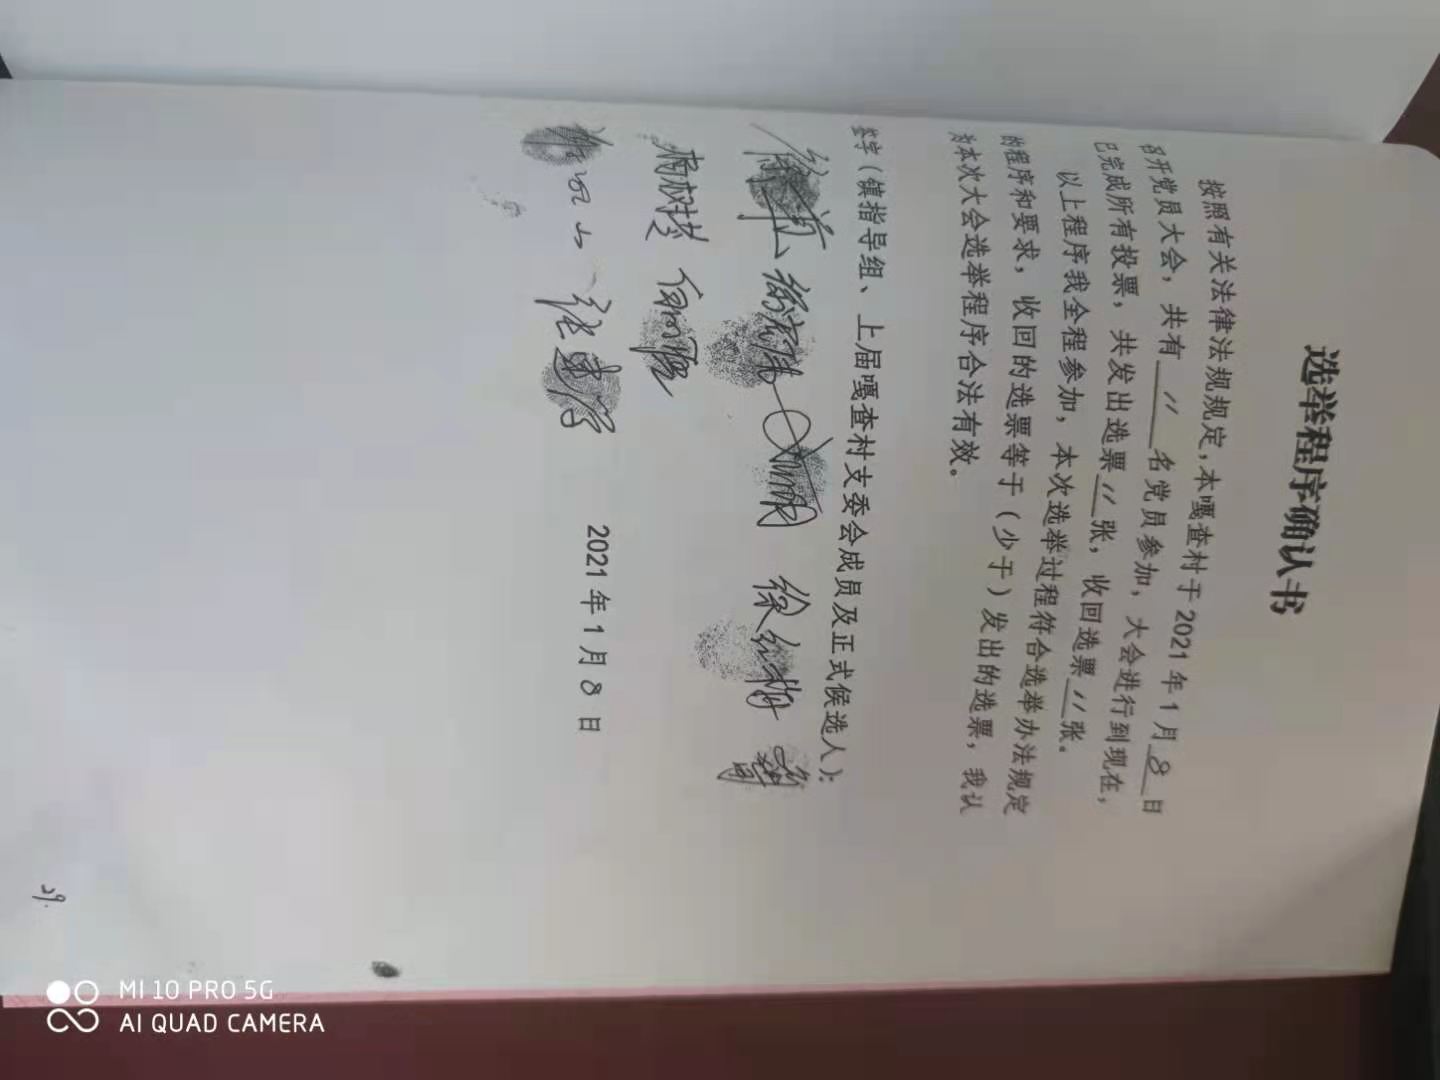 选举程序确认书
按照有关法律法规规定,本嘎查村于2021年1月8日
召开党员大会，共有11名党员参加，大会进行到现在，
已完成所有投票，共发出选票11张，收回选票11张。
以上程序我全程参加，本次选举过程符合选举办法规定
的程序和要求，收回的选票等于（少于）发出的选票，我认
为本次大会选举程序合法有效。
签字（镇指导组、上届嘎查村支委会成员及正式候选人）：
2021年1月8日
29.
MI 10 PRO 5G
AI QUAD CAMERA